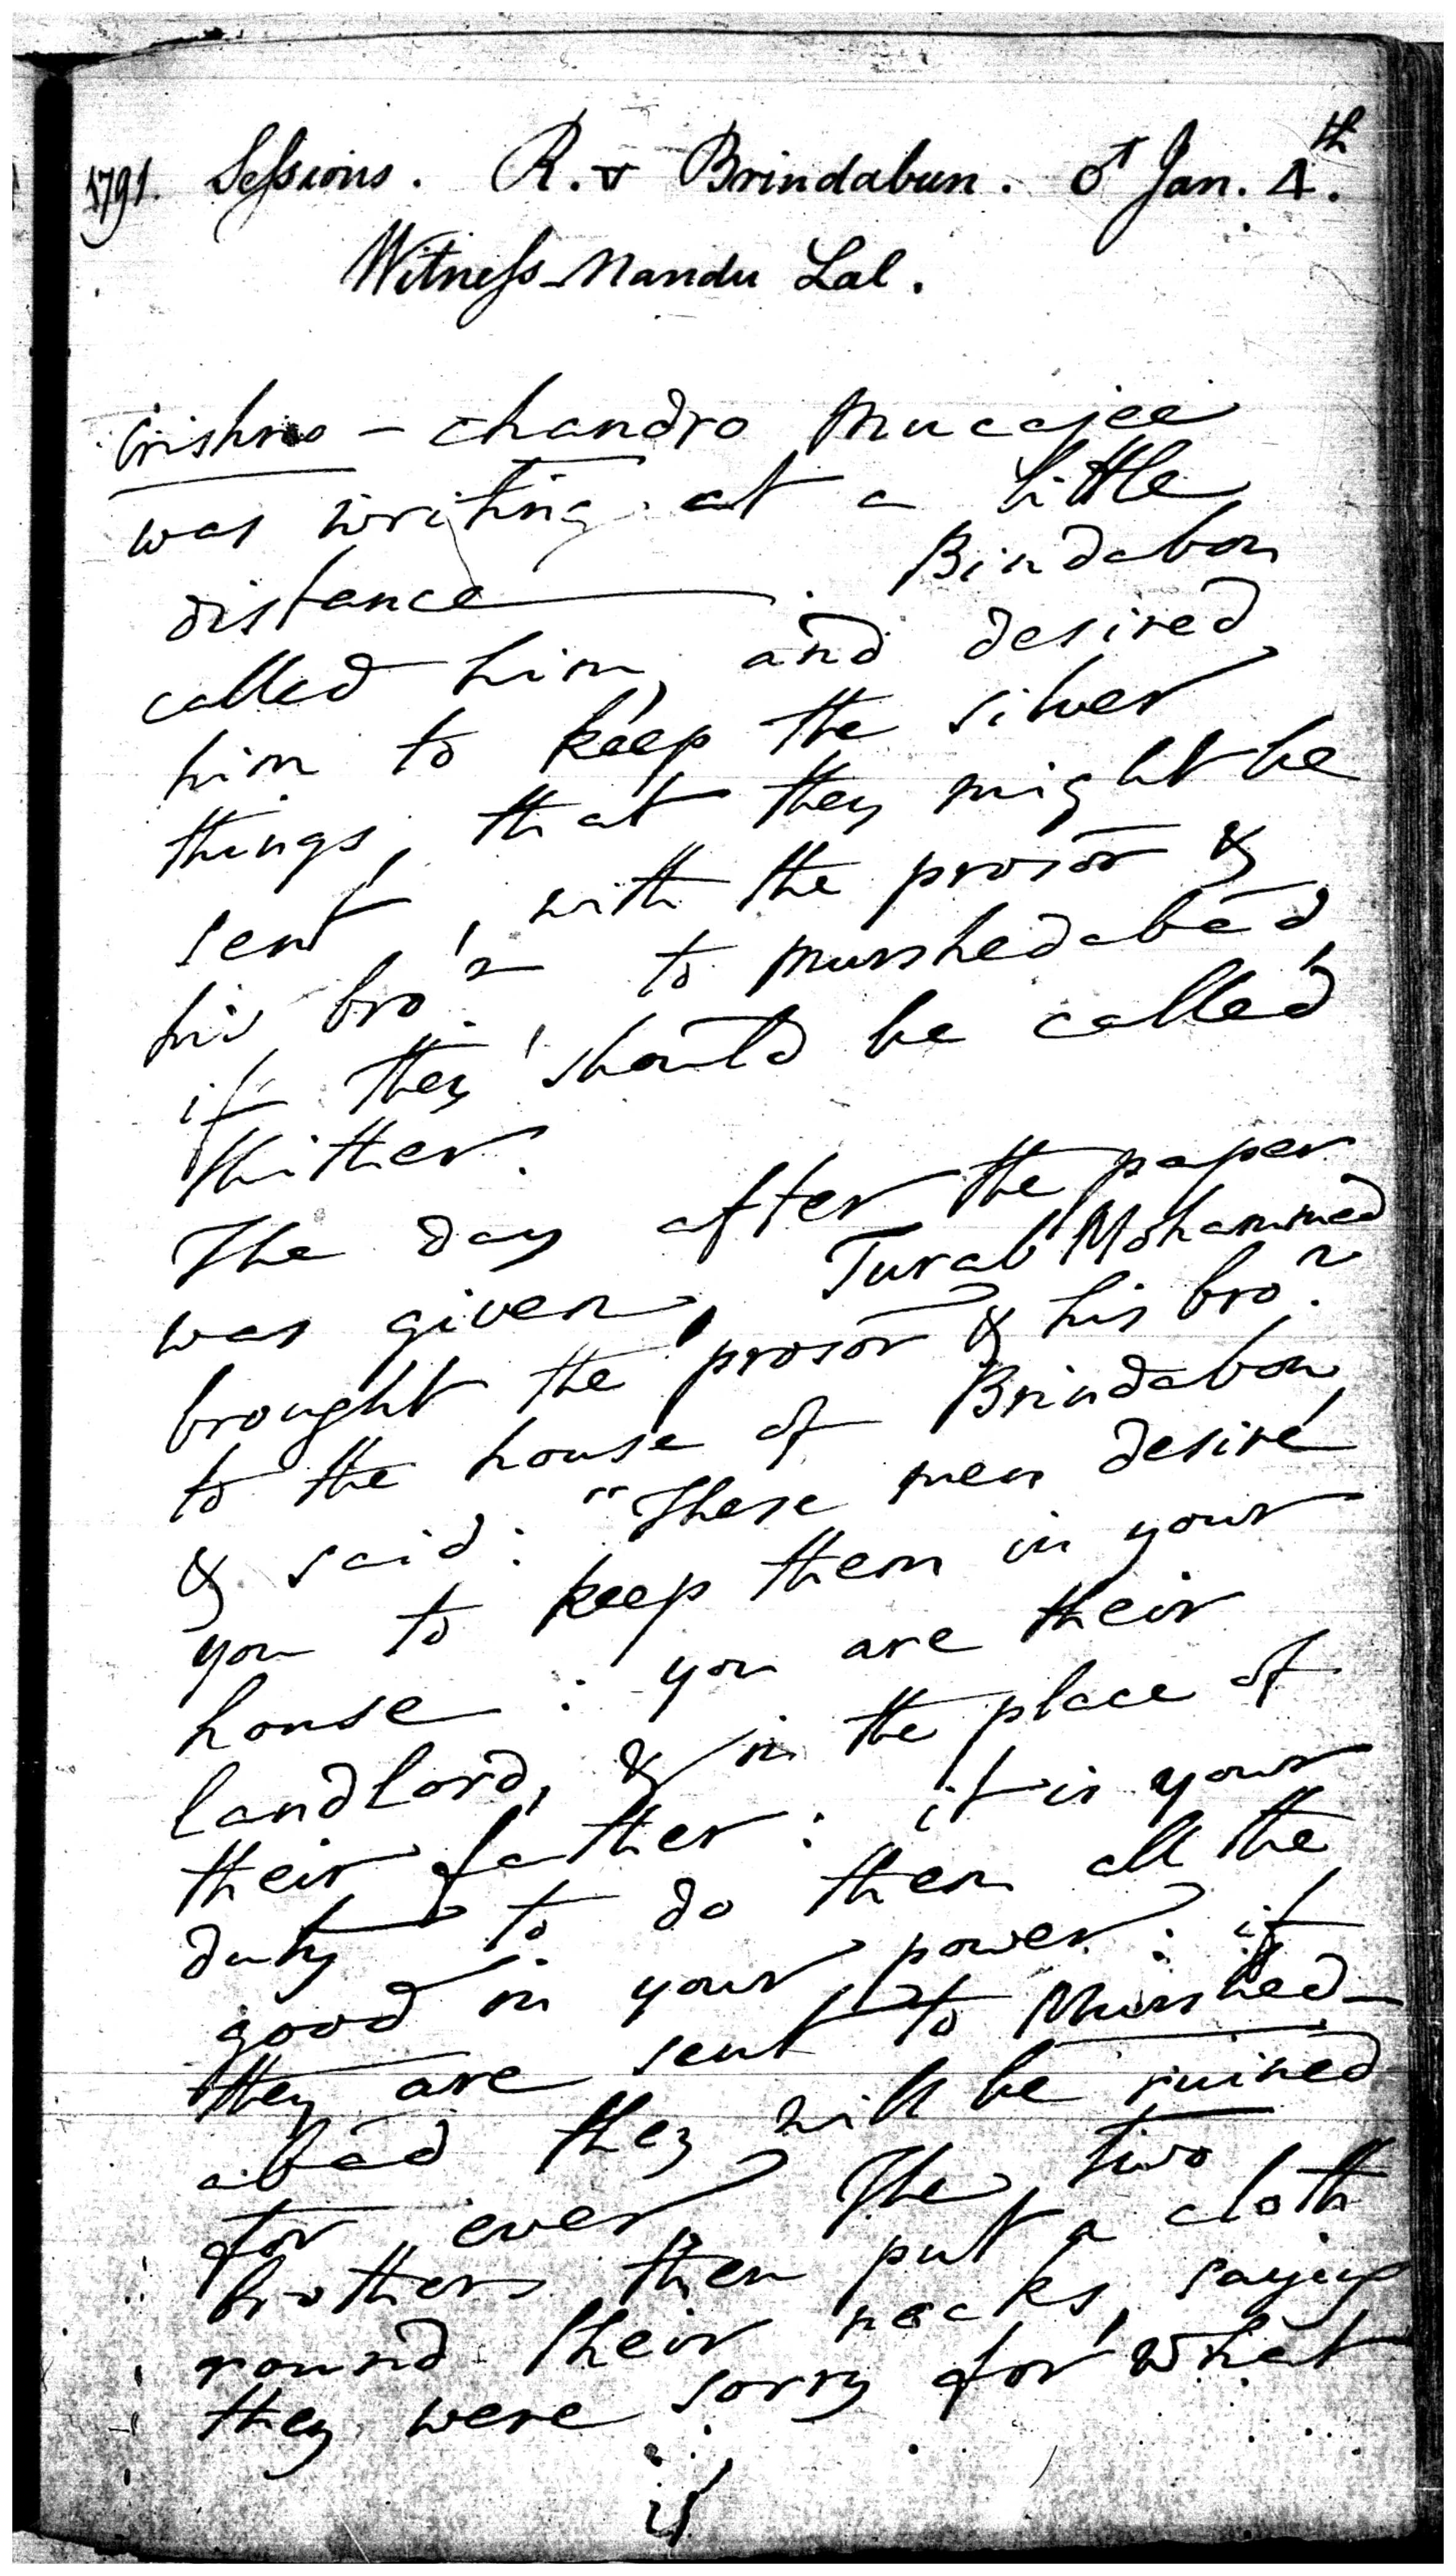 1791. Sessions. R. v Brindabun. ♂ Jan. 4.th
Witness Nandu Lal.
Crishno - chandro Mucajee
was writing at a little
distance. Bindabon
called him, and desired
him to keep the silver
things, that they might be
sent, with the prosor &
his bror to Murshedabad,
if they should be called
thither.
The day after the paper
was given, Turab Mohammed
brought the prosor & his bror
to the house of Brindabon,
& said: "These men desire
you to keep them in your
house: you are their
landlord, & in the place of
their father: it is your
duty to do them all the
good in your power: if
they are sent to Murshed-
abad they will be ruined
for ever" The two
brothers then put a cloth
round their necks, saying
they were sorry for what